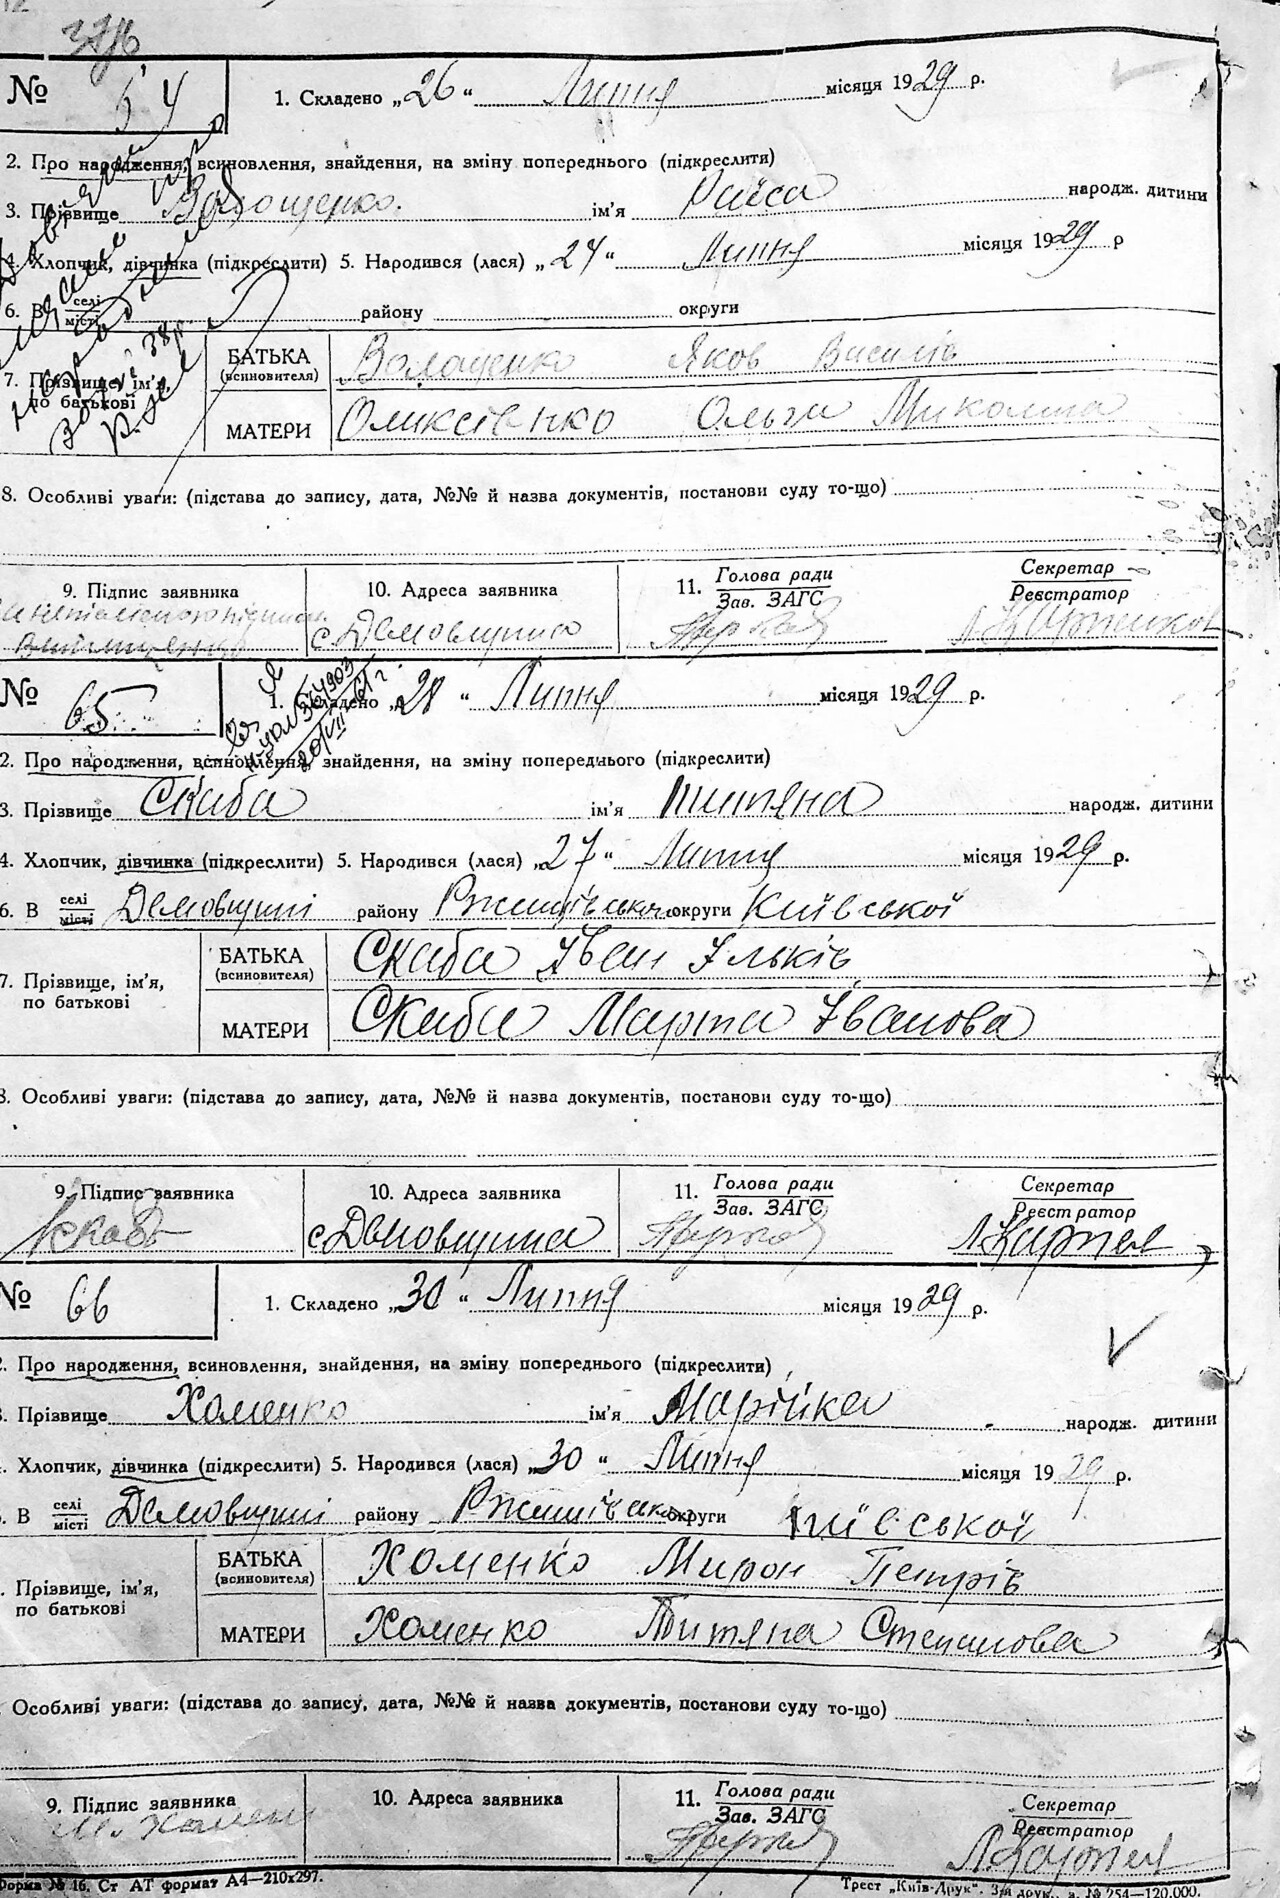 № 64
1. Складено „26“ Липня місяця 1929 р.
2. Про народження, всиновлення, знайдення, на зміну попереднього (підкреслити)
3. Прізвище Волощенко. ім'я Раїса народж. дитини
4. Хлопчик, дівчинка (підкреслити) 5. Народився (лася) „24“ Липня місяця 1929 р
6. В селі місті району округи
7. Прізвище, ім'я, по батькові
БАТЬКА (всиновителя) Волощенко Яков Василів
МАТЕРИ Ольга
8. Особливі уваги: (підстава до запису, дата, №№ й назва документів, постанови суду то-що)
9. Підпис заявника 10. Адреса заявника 11. Голова ради Зав. ЗАГС Секретар Реєстратор
с. Демовщина
№ 65
1. Складено „28“ Липня місяця 1929 р.
2. Про народження, всиновлення, знайдення, на зміну попереднього (підкреслити)
3. Прізвище Скиба ім'я Титяна народж. дитини
4. Хлопчик, дівчинка (підкреслити) 5. Народився (лася) „27“ Липня місяця 1929 р.
6. В селі місті Демовщині району Ржищівського округи Київської
7. Прізвище, ім'я, по батькові
БАТЬКА (всиновителя) Скиба Іван Ільків
МАТЕРИ Скиба Марта Іванова
8. Особливі уваги: (підстава до запису, дата, №№ й назва документів, постанови суду то-що)
9. Підпис заявника 10. Адреса заявника 11. Голова ради Зав. ЗАГС Секретар Реєстратор
с. Демовщина
№ 66
1. Складено „30“ Липня місяця 1929 р.
2. Про народження, всиновлення, знайдення, на зміну попереднього (підкреслити)
3. Прізвище Хоменко ім'я Марійка народж. дитини
4. Хлопчик, дівчинка (підкреслити) 5. Народився (лася) „30“ Липня місяця 1929 р.
В селі місті Демовщині району Ржищівськ. округи Київської
Прізвище, ім'я, по батькові
БАТЬКА (всиновителя) Хоменко Мирон Петрів
МАТЕРИ Хоменко Титяна Степанова
Особливі уваги: (підстава до запису, дата, №№ й назва документів, постанови суду то-що)
9. Підпис заявника 10. Адреса заявника 11. Голова ради Зав. ЗАГС Секретар Реєстратор
М. Хомен
Форма № 16. Ст АТ формат А4—210x297.
Трест „Київ-Друк“. 3-я друк. з. № 254—120.000.